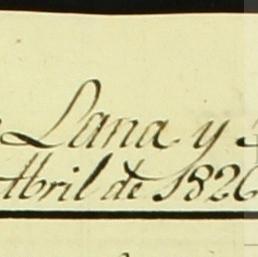 Lana y
Abril de 1826